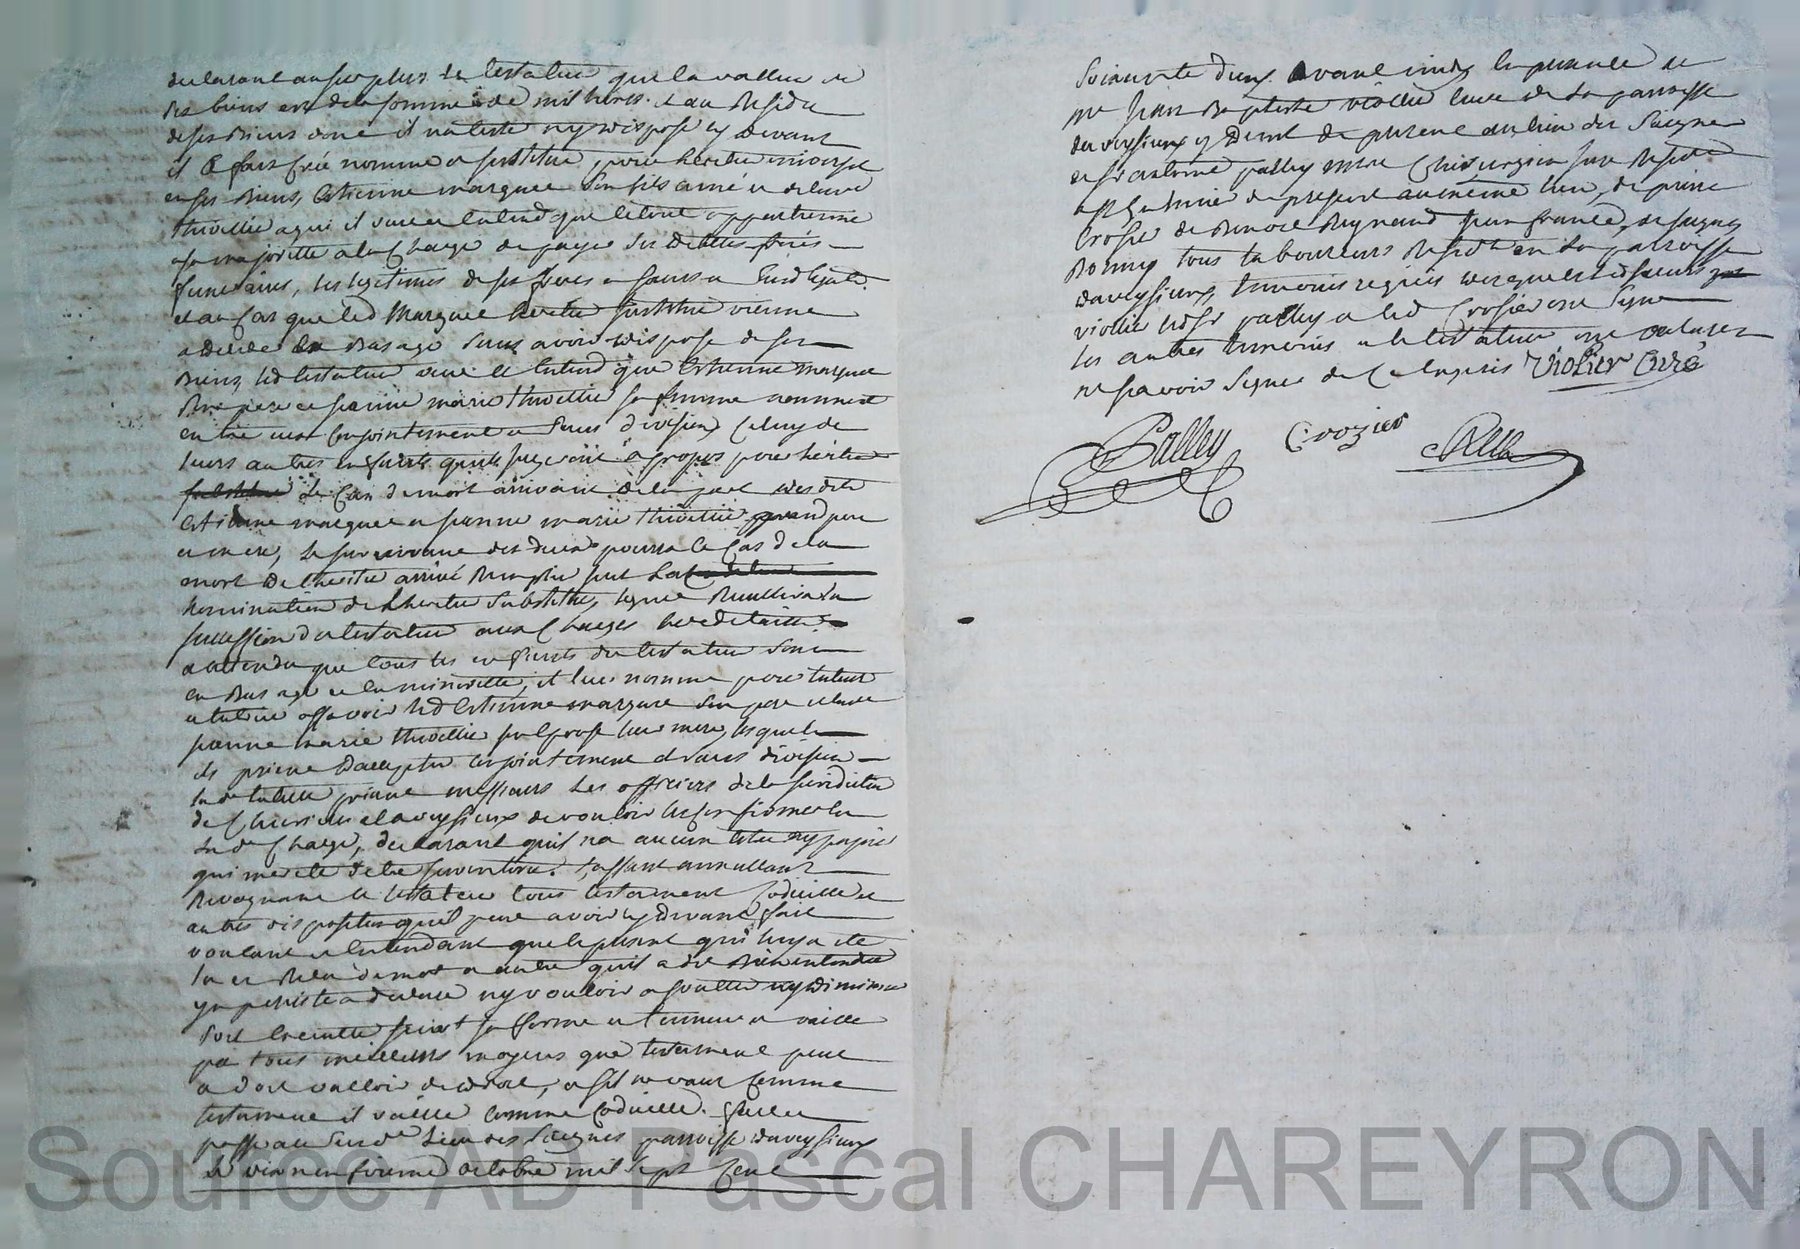 declarant au surplus le testateur que la valleur de
ses biens est de la somme de mil livres. et au Residu
de ses Biens dont il n'a testé ny disposé cy devant
il a fait créé nommé et institué pour heritier universel
en ses Biens, Estienne marquet son fils ainé et de lad
thiollier a qui il veut et entend que le tout appartienne
a sa majorité a la Charge de payer ses dettes frais
funeraires, les legitimes de ses freres et soeurs
et au Cas que led Marquet heritier institué vienne
a deceder En Bas age sans avoir disposé de ses
Biens, led testateur veut et Entend que Estienne marquet
Son pere et jeanne marie thiollier sa femme nomment
entre eux Conjointement et sans division Celuy de
leurs autres enfants quils jugeront a propos pour heritier
le Cas de mort arrivant de la part desdits
Estienne marquet et jeanne marie thiollier grand pere
et mere, le survivant des deux pourra le Cas de la
mort de l'heritier arrivé Remplir seul
Nomination de l'heritier Substitué, lequel Recullira la
succession du testateur aux Charges hereditaires
attendu que tous les enfants du testateur sont
en Bas age et en minorité, il leur nomme pour tuteur
et tutrice assavoir led Estienne marquet son pere et lad
jeanne marie thiollier son Epouse leur mere, lesquels
il prient d'accepter conjointement et sans division
lad tutelle priant messieurs Les officiers de la juridiction
de et laveyssieux de vouloir les confirmer en
lad Charge, declarant quil n'a aucun titre ny papier
qui merite detre inventorié. Cassant annullant
Revoquant le testateur tous testament Codicille et
autres disposition quil peut avoir cy devant fait
voulant et Entendant que le present qui luy a été
lu et Relu de mot a autre quil a dit Bien entendre
y a persisté a declaré ny vouloir ajoutter ny diminuer
soit Executté suivant sa forme et teneur et vaille
par tous meilleurs moyens que testament peut
et doit valloir de droit, et s'il ne vaut Comme
testament il vaille comme Codicille. fait et
passé au susd Lieu des Saignes parroisse daveyssieux
le vingt neufvieme octobre mil sept Cent
Soixante deux avant midy En presence de
mre Jean Baptiste viollier Curé de la parroisse
daveyssieux y demt de present au lieu des Saignes
et sr antoine palley mtre Chirurgien juré Residt
a de present au meme lieu, de pierre
Crosier de Reynaud Jean francois, de saignes
tous laboureurs Residt en la parroisse
daveyssieux, temoins requis lesquels led sieurs
viollier led sr palley et led Crosier ont Signé
les autres temoins et le testateur ont declarez
ne sçavoir Signer de Ce Enquis Violier Curé
Palley Crozier
Source AD Pascal CHAREYRON